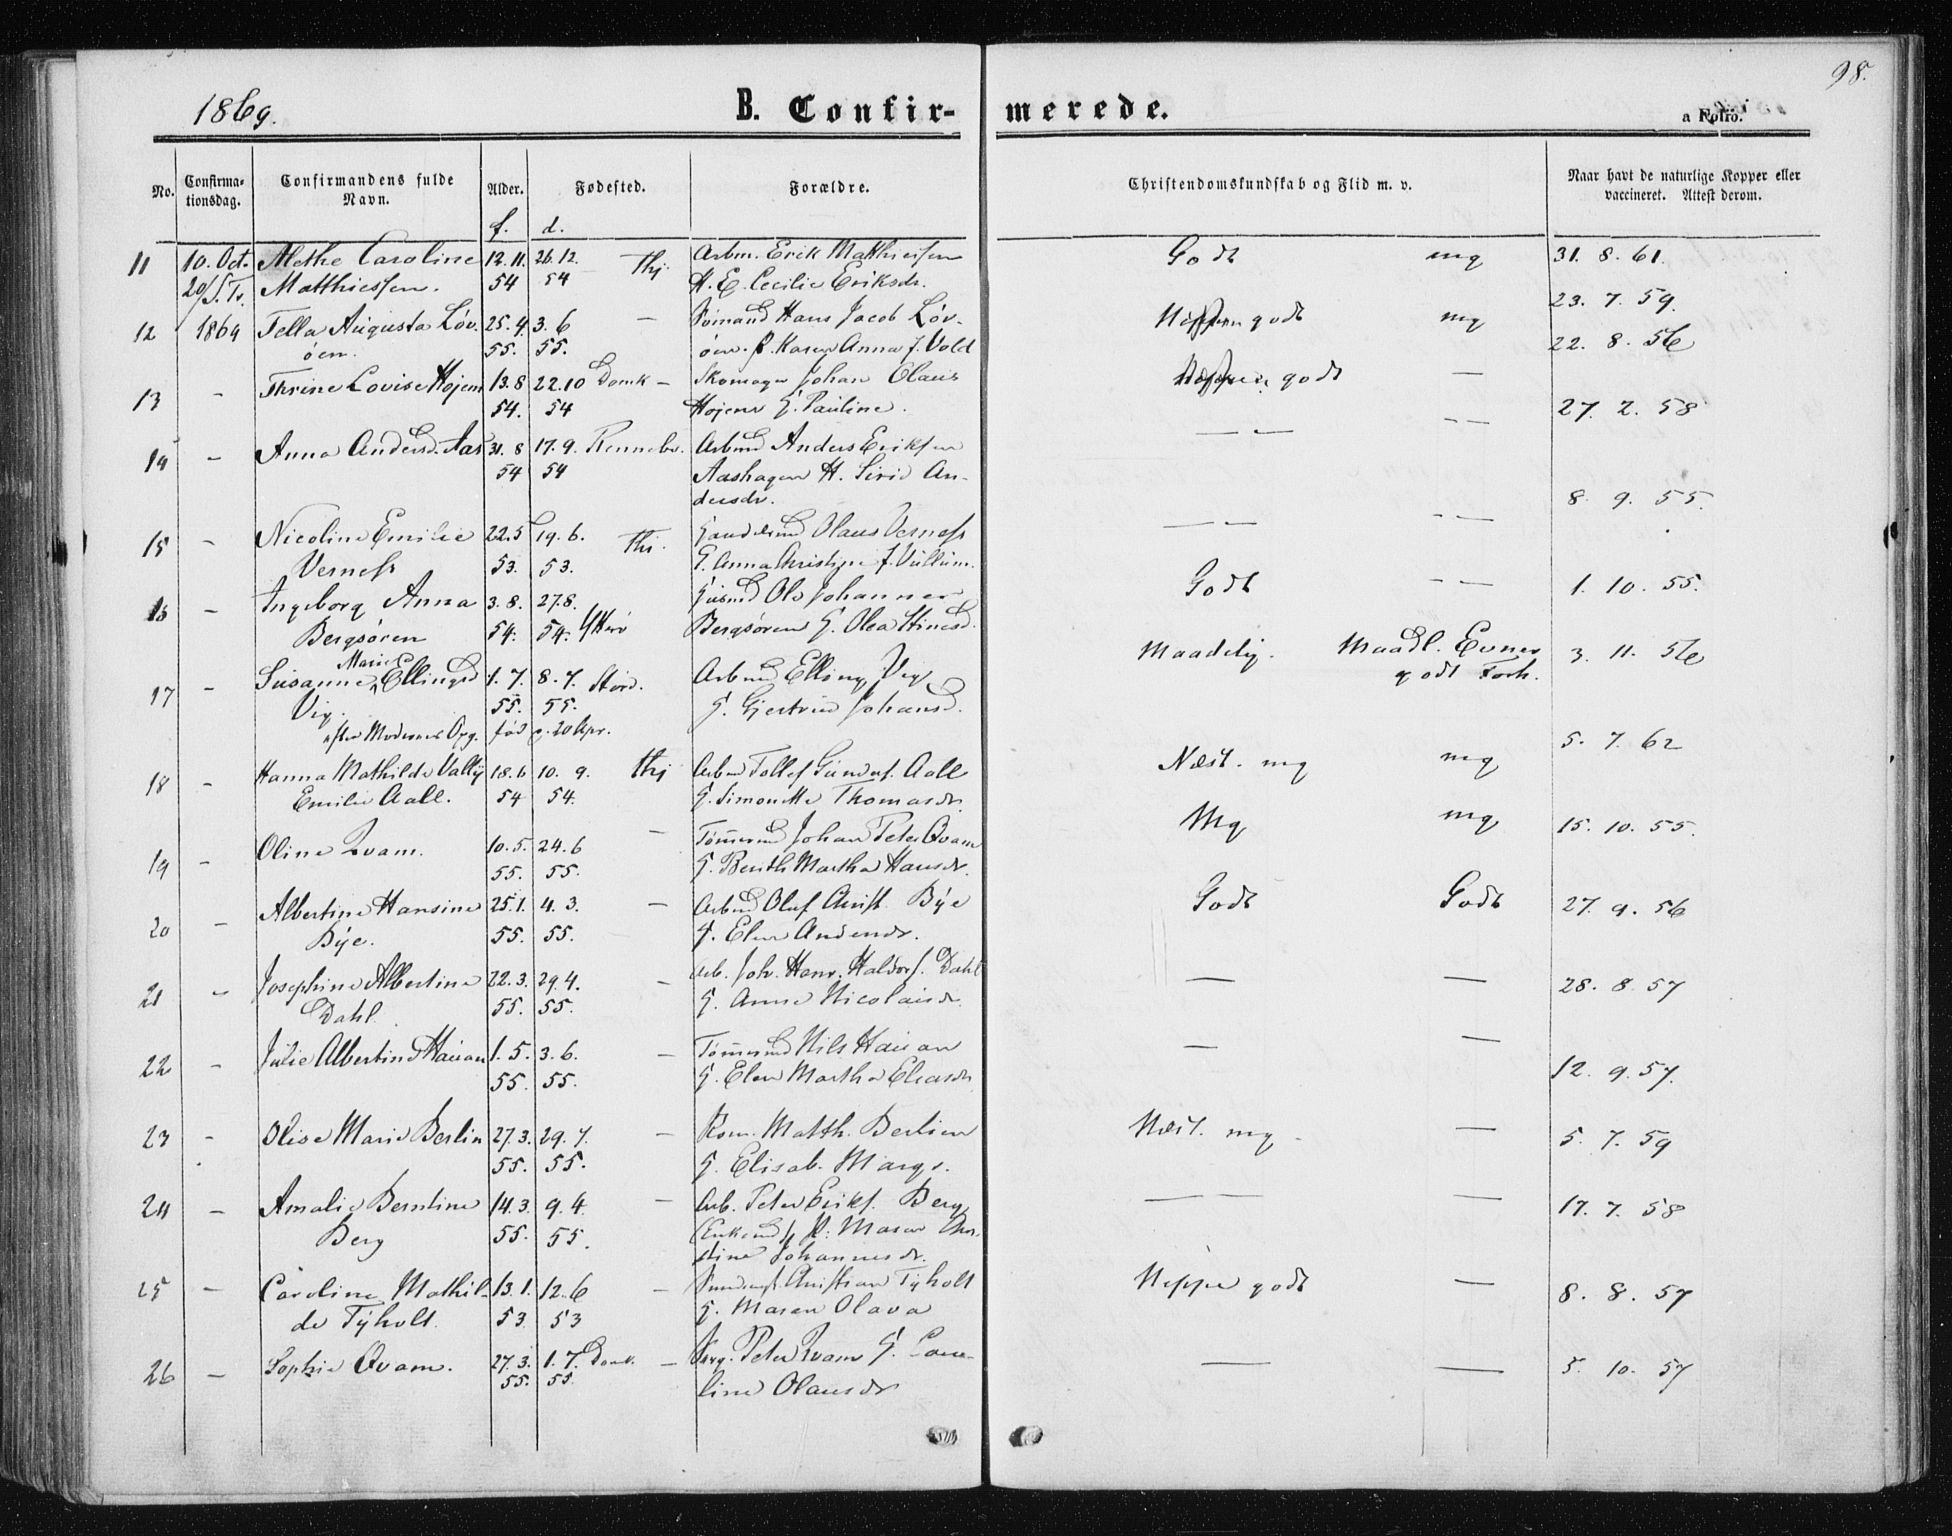 98.
1869.
B. Confir- merede.
a Folio.
No.
Confirma-
tionsdag.
Confirmandens fulde
Navn.
Alder.
Fødested.
Forældre.
Christendomskundskab og Flid m. v.
Naar havt de naturlige Kopper eller
vaccineret. Attest derom.
f. d.
11 10. Oct. Methe Caroline 12.11. 26.12. Thj Arbm. Erik Matthiessen Godt mg 31. 8. 61.
20/S. Tr. Matthiessen. 54 54 H. E. Cecilie Eriksdr.
23. 7. 59.
12 1869 Tella Augusta Løv- 25.4 3.6 — Sømand Hans Jacob Løv- godt mg
øen. 55. 55. øen. Karen Anna J. Vold 22. 8. 56
13 - Thrine Lovise Hojem 13.8 22.10 Domk — Skomager Johan Olaus godt —
54. 54 Hojem G. Pauline. 27. 2. 58
14 - Anna Andersd. Aas 31.8 17.9. Rennebo. Arbmd Anders Eriksen — — - -
54 54 Aashagen H. Siri An-
dersdr. 8. 9. 55.
15 - Nicoline Emilie 22.5 19.6. Thj. Olaus Verness — — - -
Verness 53. 53. G. Anna Christine J. Vullum.
16 - Ingeborg Anna 3.8. 27.8. Ole Johannes Godt - - 1. 10. 55.
Bergsøren 54. 54. Bergsøren G. Olea
17 - Susanne Marie Ellingsd 1.7. 8.7. Størd. Arbmd Elling Vig Maadelig. Maadl. Evner 3. 11. 56
Vig. 55. 55. G. Gjertrud Johansd. godt Forh.
efter Moderens Opg. fød 20 Apr.
5. 7. 62
18 - Hanna Mathilde Vally 18.6 10. 9. Thj Arbmd Tollef Gunders. Aall Næst. mg mg
Emilie Aall. 54 54. G. Simonette Thomasdr.
19 - Oline Qvam. 10.5. 24.6 — Tømmermd Johan Peter Qvam Mg mg 15. 10. 55.
55. 55. G. Berith Martha Hansdr.
20 - Albertine Hansine 25.1. 4. 3. — Arbmd Oluf Christ. Bye Godt Godt 27. 9. 56
Bye. 55. 55. G. Elen Andersdr.
21 - Josephine Albertine 22.3. 29.4. — Arb. Joh. Henr. Haldors. Dahl — — 28. 8. 57
Dahl. 55. 55. G. Anne Nicolaisdr.
22 - Julie Albertine Hauan 1.5. 3.6. — Tømmermd Nils Hauan — —
55. 55. G. Elen Martha Eliasdr. 12. 9. 57.
23 - Olise Marie Berlin 27.3. 29.7. — Kom. Matth. Berlin Næst. mg — 5. 7. 59
55. 55. G. Elisab. Margr.
24 - Amalie Berntine 14.3. 9.4. — Arb. Peter Eriks. Berg — — — 17. 7. 58
Berg 55. 55. Enkemd Maren
Johannesdr.
25 - Caroline Mathil- 13.1. 12.6 — Christian Tyholt Neppe godt — 8. 8. 57
de Tyholt. 53. 53 G. Maren Olava
26 - Sophie Qvam. 27.3. 1.7. Domk. — Peter Qvam G. Caro- — — 5. 10. 57
55. 55. line Olausdr